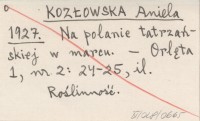 KOZŁOWSKA Aniela
1927. Na polanie tatrzań-
skiej w marcu. — Orlęta
1, nr 2: 24-25, il.
Roślinność.